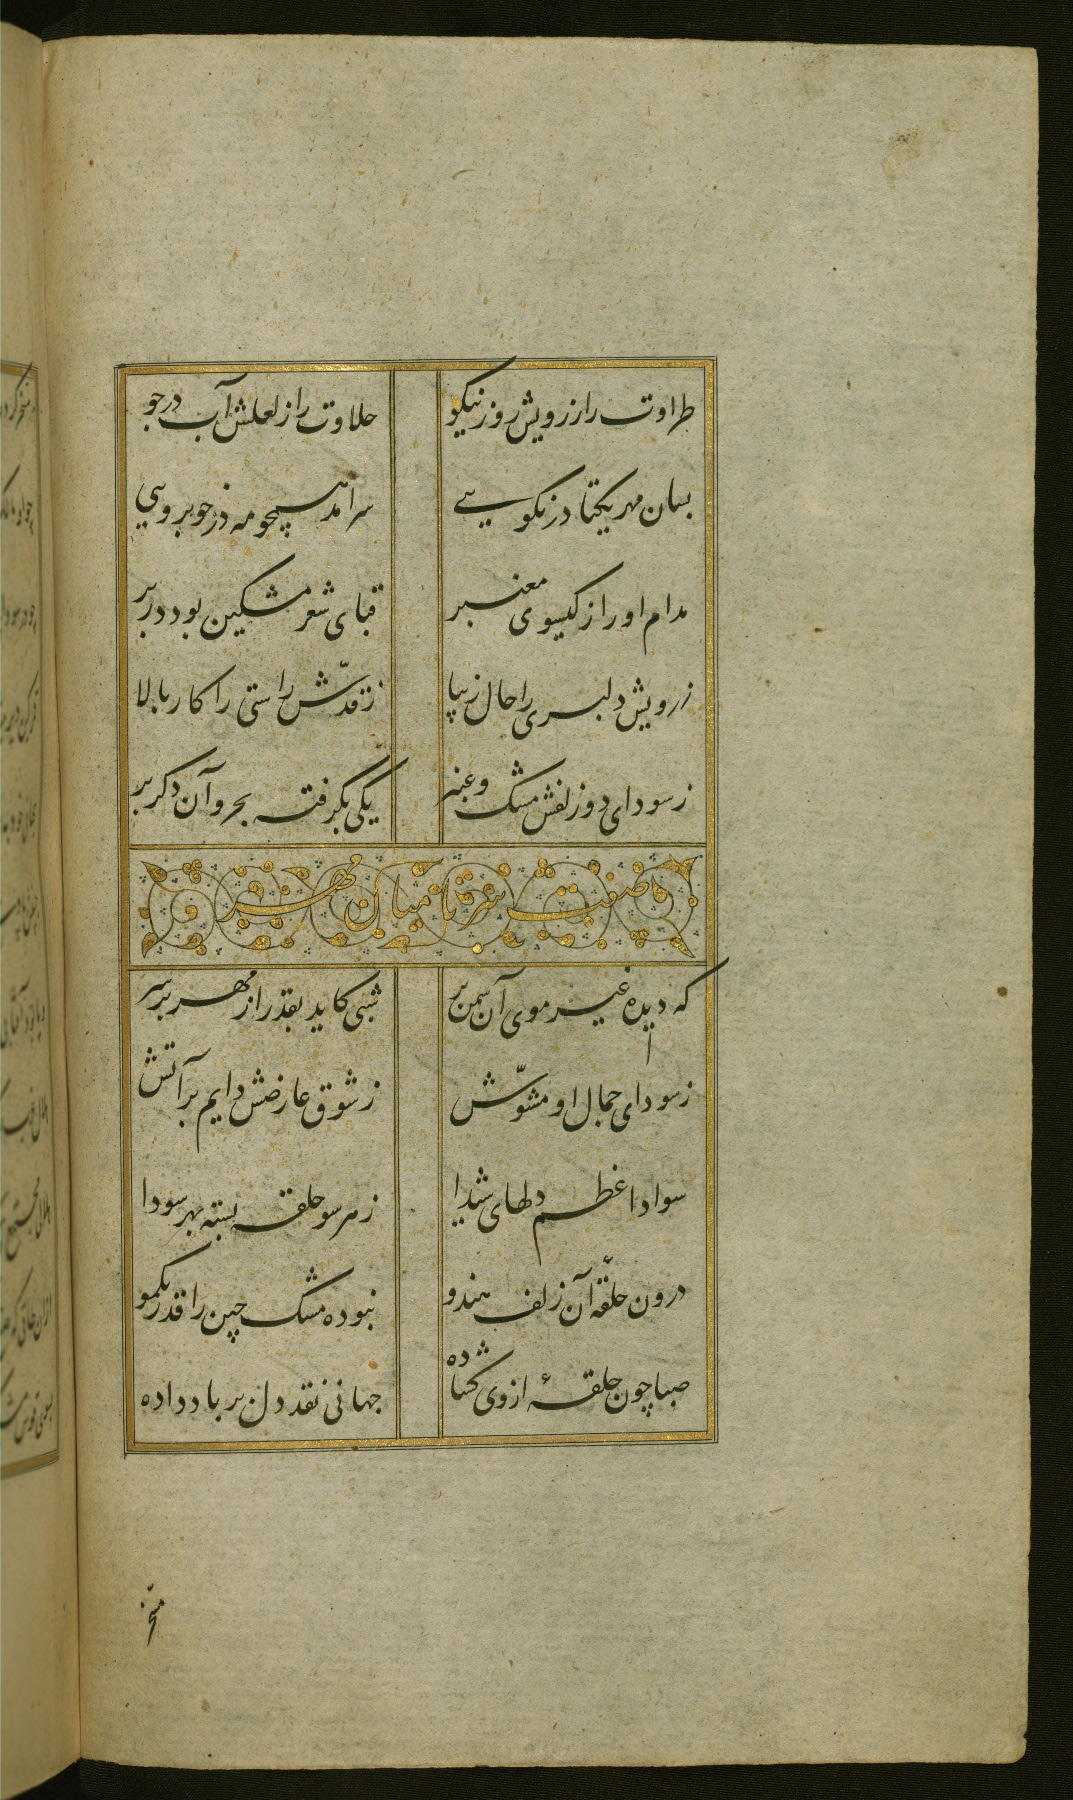 طراوت را ز رویش روز نیکو
حلاوت را ز لعلش آب در جو
بسان مهر یکتا در نکویے
سرامد همچو مه در خوبرویی
مدام او را ز کیسوی معنبر
قبای شعر مشکین بود در بر
ز رویش دلبری را حال زیبا
ز قدّش راستی را کار بالا
ز سودای دو زلفش مشک و عنبر
یکی بکرفته بحر و آن دکر بر
صفت سر تا
مهر
که دیده غیر موی آن سمن بر
شبی کاید بقدر از مهر بر سر
ز سودای جمال او مشوّش
ز شوق عارضش دایم بر آتش
سواد اعظم دلهای شیدا
ز هر سو حلقه بسته بهر سودا
درون حلقهٔ آن زلف هندو
نبوده مشک چین را قدر یکمو
صبا چون حلقهٔ از وی کشاده
جهانی نقد دل بر باد داده